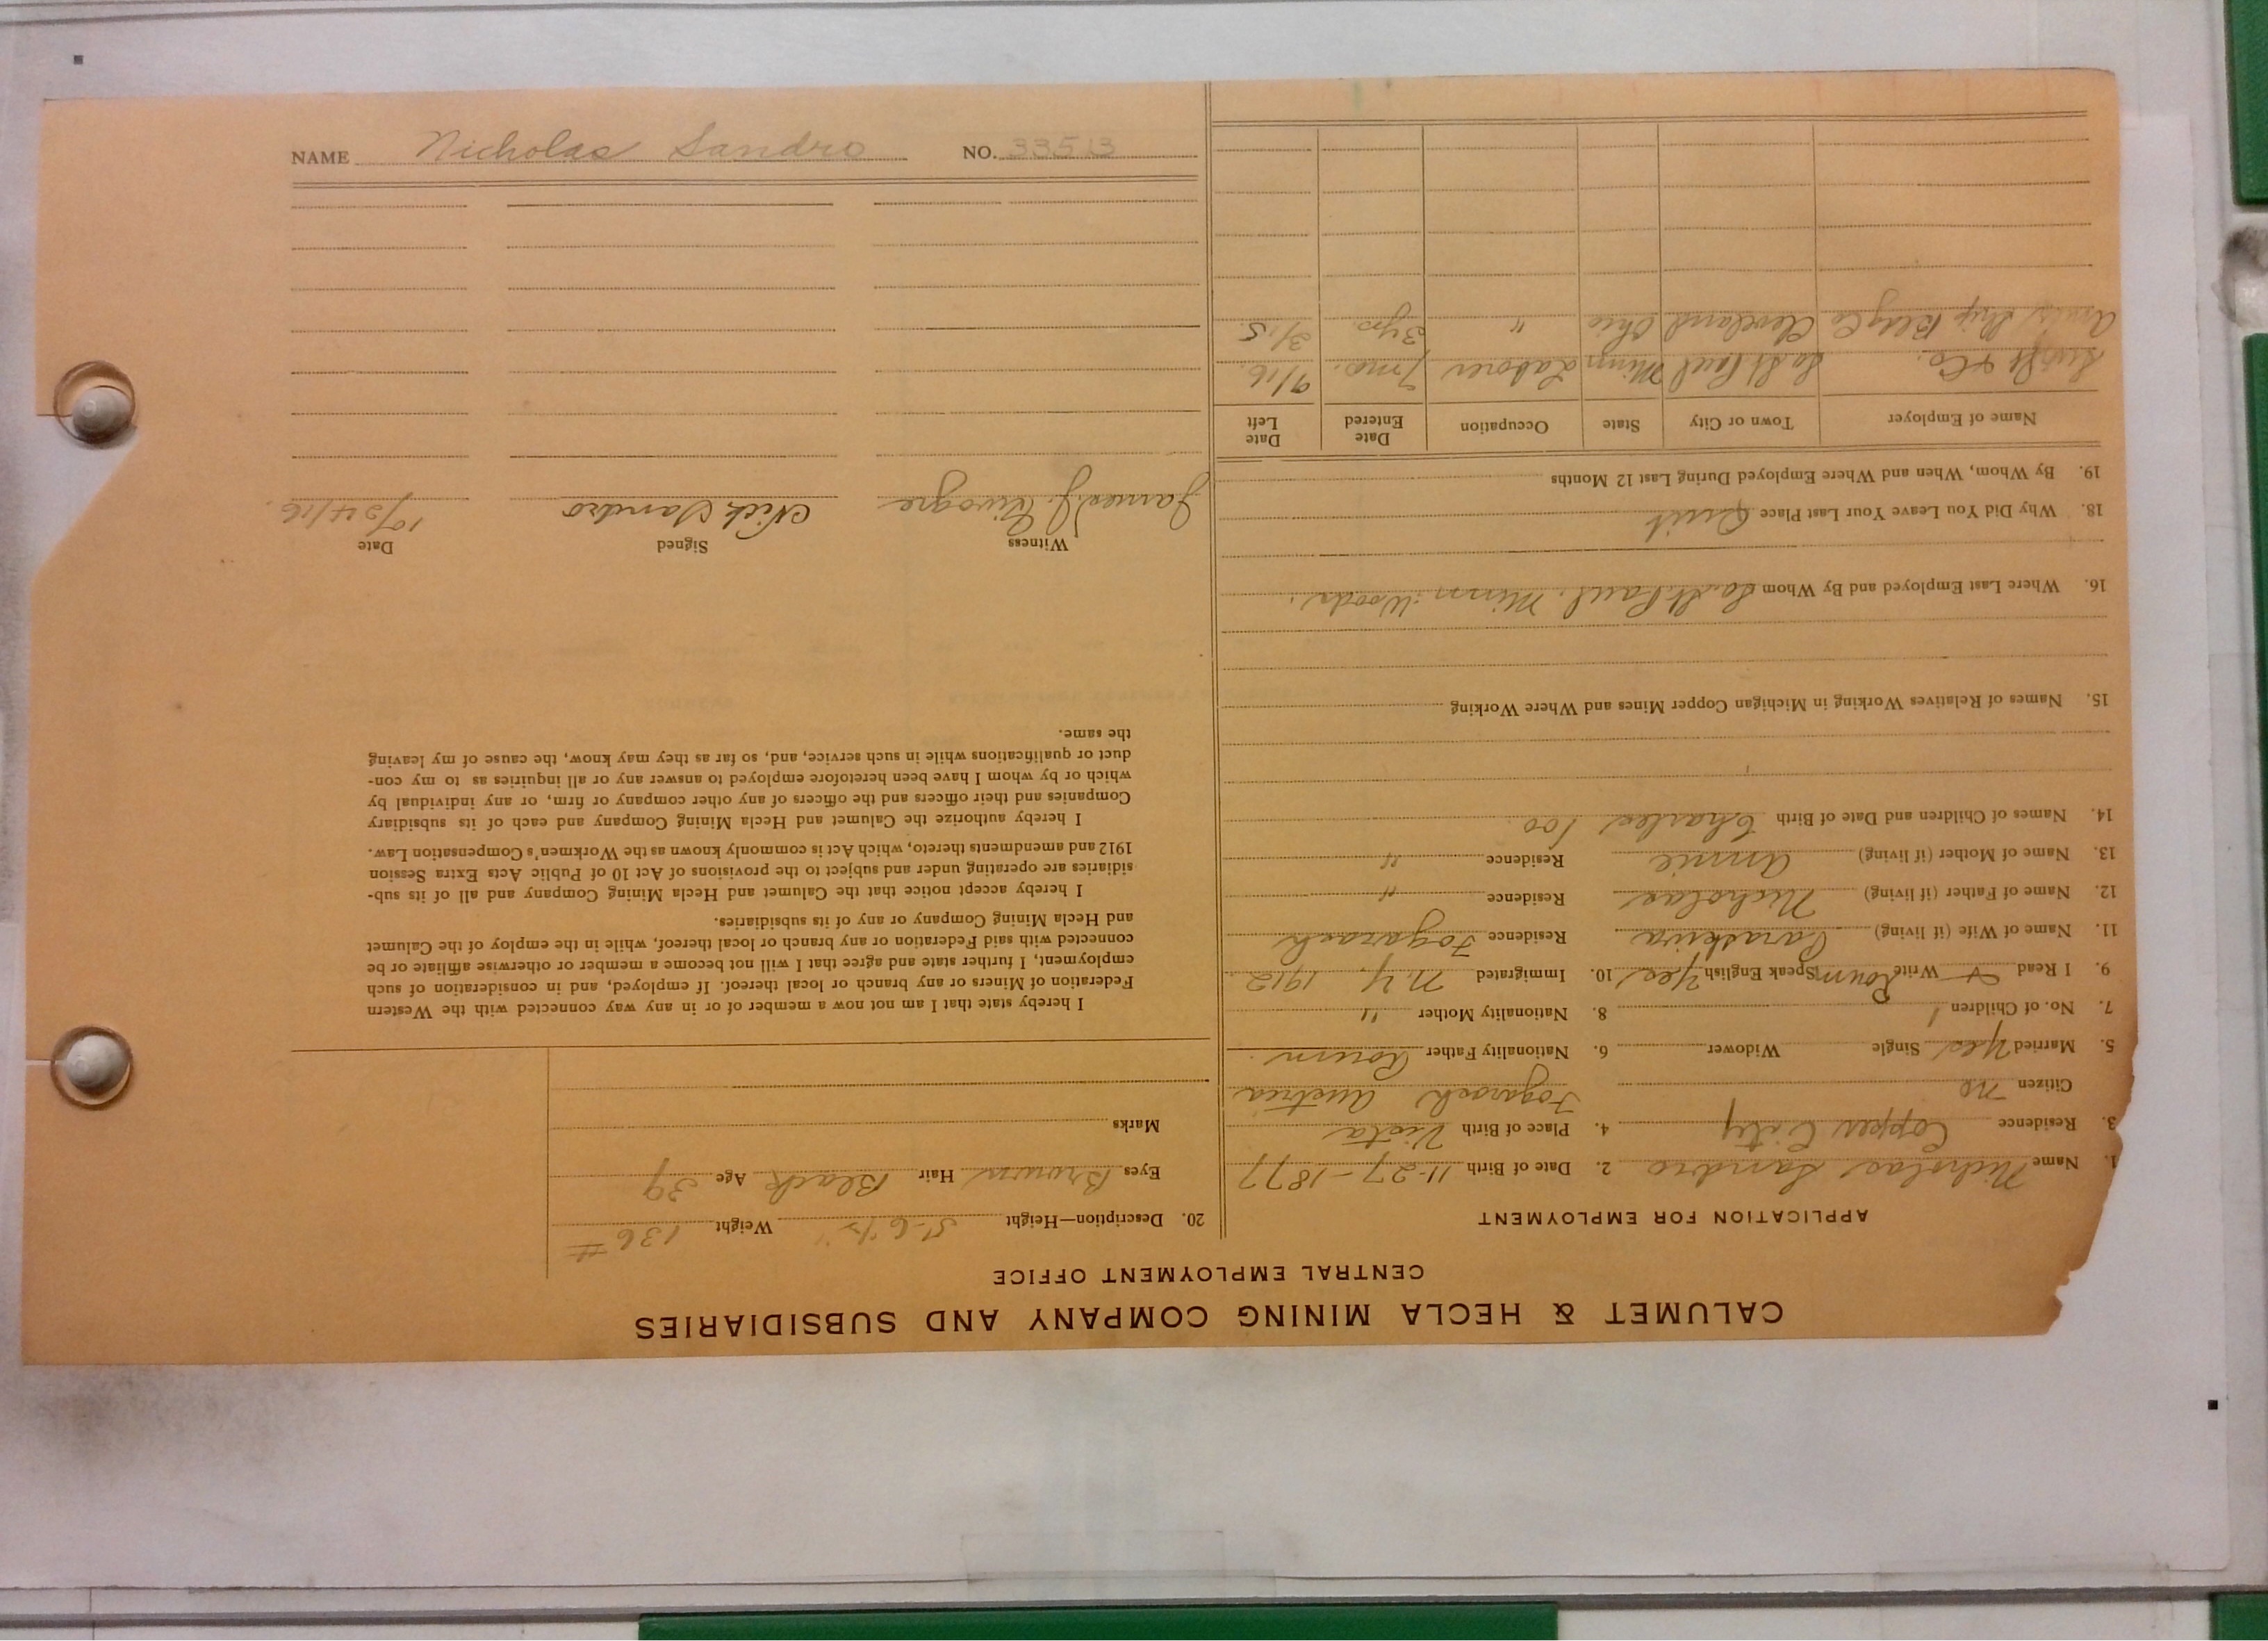 CALUMET & HECLA MINING COMPANY AND SUBSIDIARIES
CENTRAL EMPLOYMENT OFFICE
APPLICATION FOR EMPLOYMENT
1. Name Nicholas Sandro 2. Date of Birth 11-27-1877
3. Residence Copper City 4. Place of Birth Vista
Citizen no Fogarash Austria
5. Married Yes Single Widower 6. Nationality Father Roum
7. No. of Children 1 8. Nationality Mother "
9. I Read + Write Roum Speak English Yes 10. Immigrated N.Y. 1912
11. Name of Wife (if living) Paraskiva Residence Fogarash
12. Name of Father (if living) Nicholas Residence "
13. Name of Mother (if living) Annie Residence "
14. Names of Children and Date of Birth Charles 100
15. Names of Relatives Working in Michigan Copper Mines and Where Working
16. Where Last Employed and By Whom So. St. Paul. Minn. Woods.
18. Why Did You Leave Your Last Place Quit
19. By Whom, When and Where Employed During Last 12 Months
Name of Employer Town or City State Occupation Date Entered Date Left
Swift & Co. So. St Paul Minn Laborer 7 mo. 9/16.
Ship Bldg Co Cleveland Ohio " 3 yrs. 3/15.
20. Description—Height 5-6½" Weight 136 #
Eyes Brown Hair Black Age 39
Marks
I hereby state that I am not now a member of or in any way connected with the Western
Federation of Miners or any branch or local thereof. If employed, and in consideration of such
employment, I further state and agree that I will not become a member or otherwise affiliate or be
connected with said Federation or any branch or local thereof, while in the employ of the Calumet
and Hecla Mining Company or any of its subsidiaries.
I hereby accept notice that the Calumet and Hecla Mining Company and all of its sub-
sidiaries are operating under and subject to the provisions of Act 10 of Public Acts Extra Session
1912 and amendments thereto, which Act is commonly known as the Workmen's Compensation Law.
I hereby authorize the Calumet and Hecla Mining Company and each of its subsidiary
Companies and their officers and the officers of any other company or firm, or any individual by
which or by whom I have been heretofore employed to answer any or all inquiries as to my con-
duct or qualifications while in such service, and, so far as they may know, the cause of my leaving
the same.
Witness Signed Date
James J. Nick Sandro 10/24/16.
NAME Nicholas Sandro NO. 33513